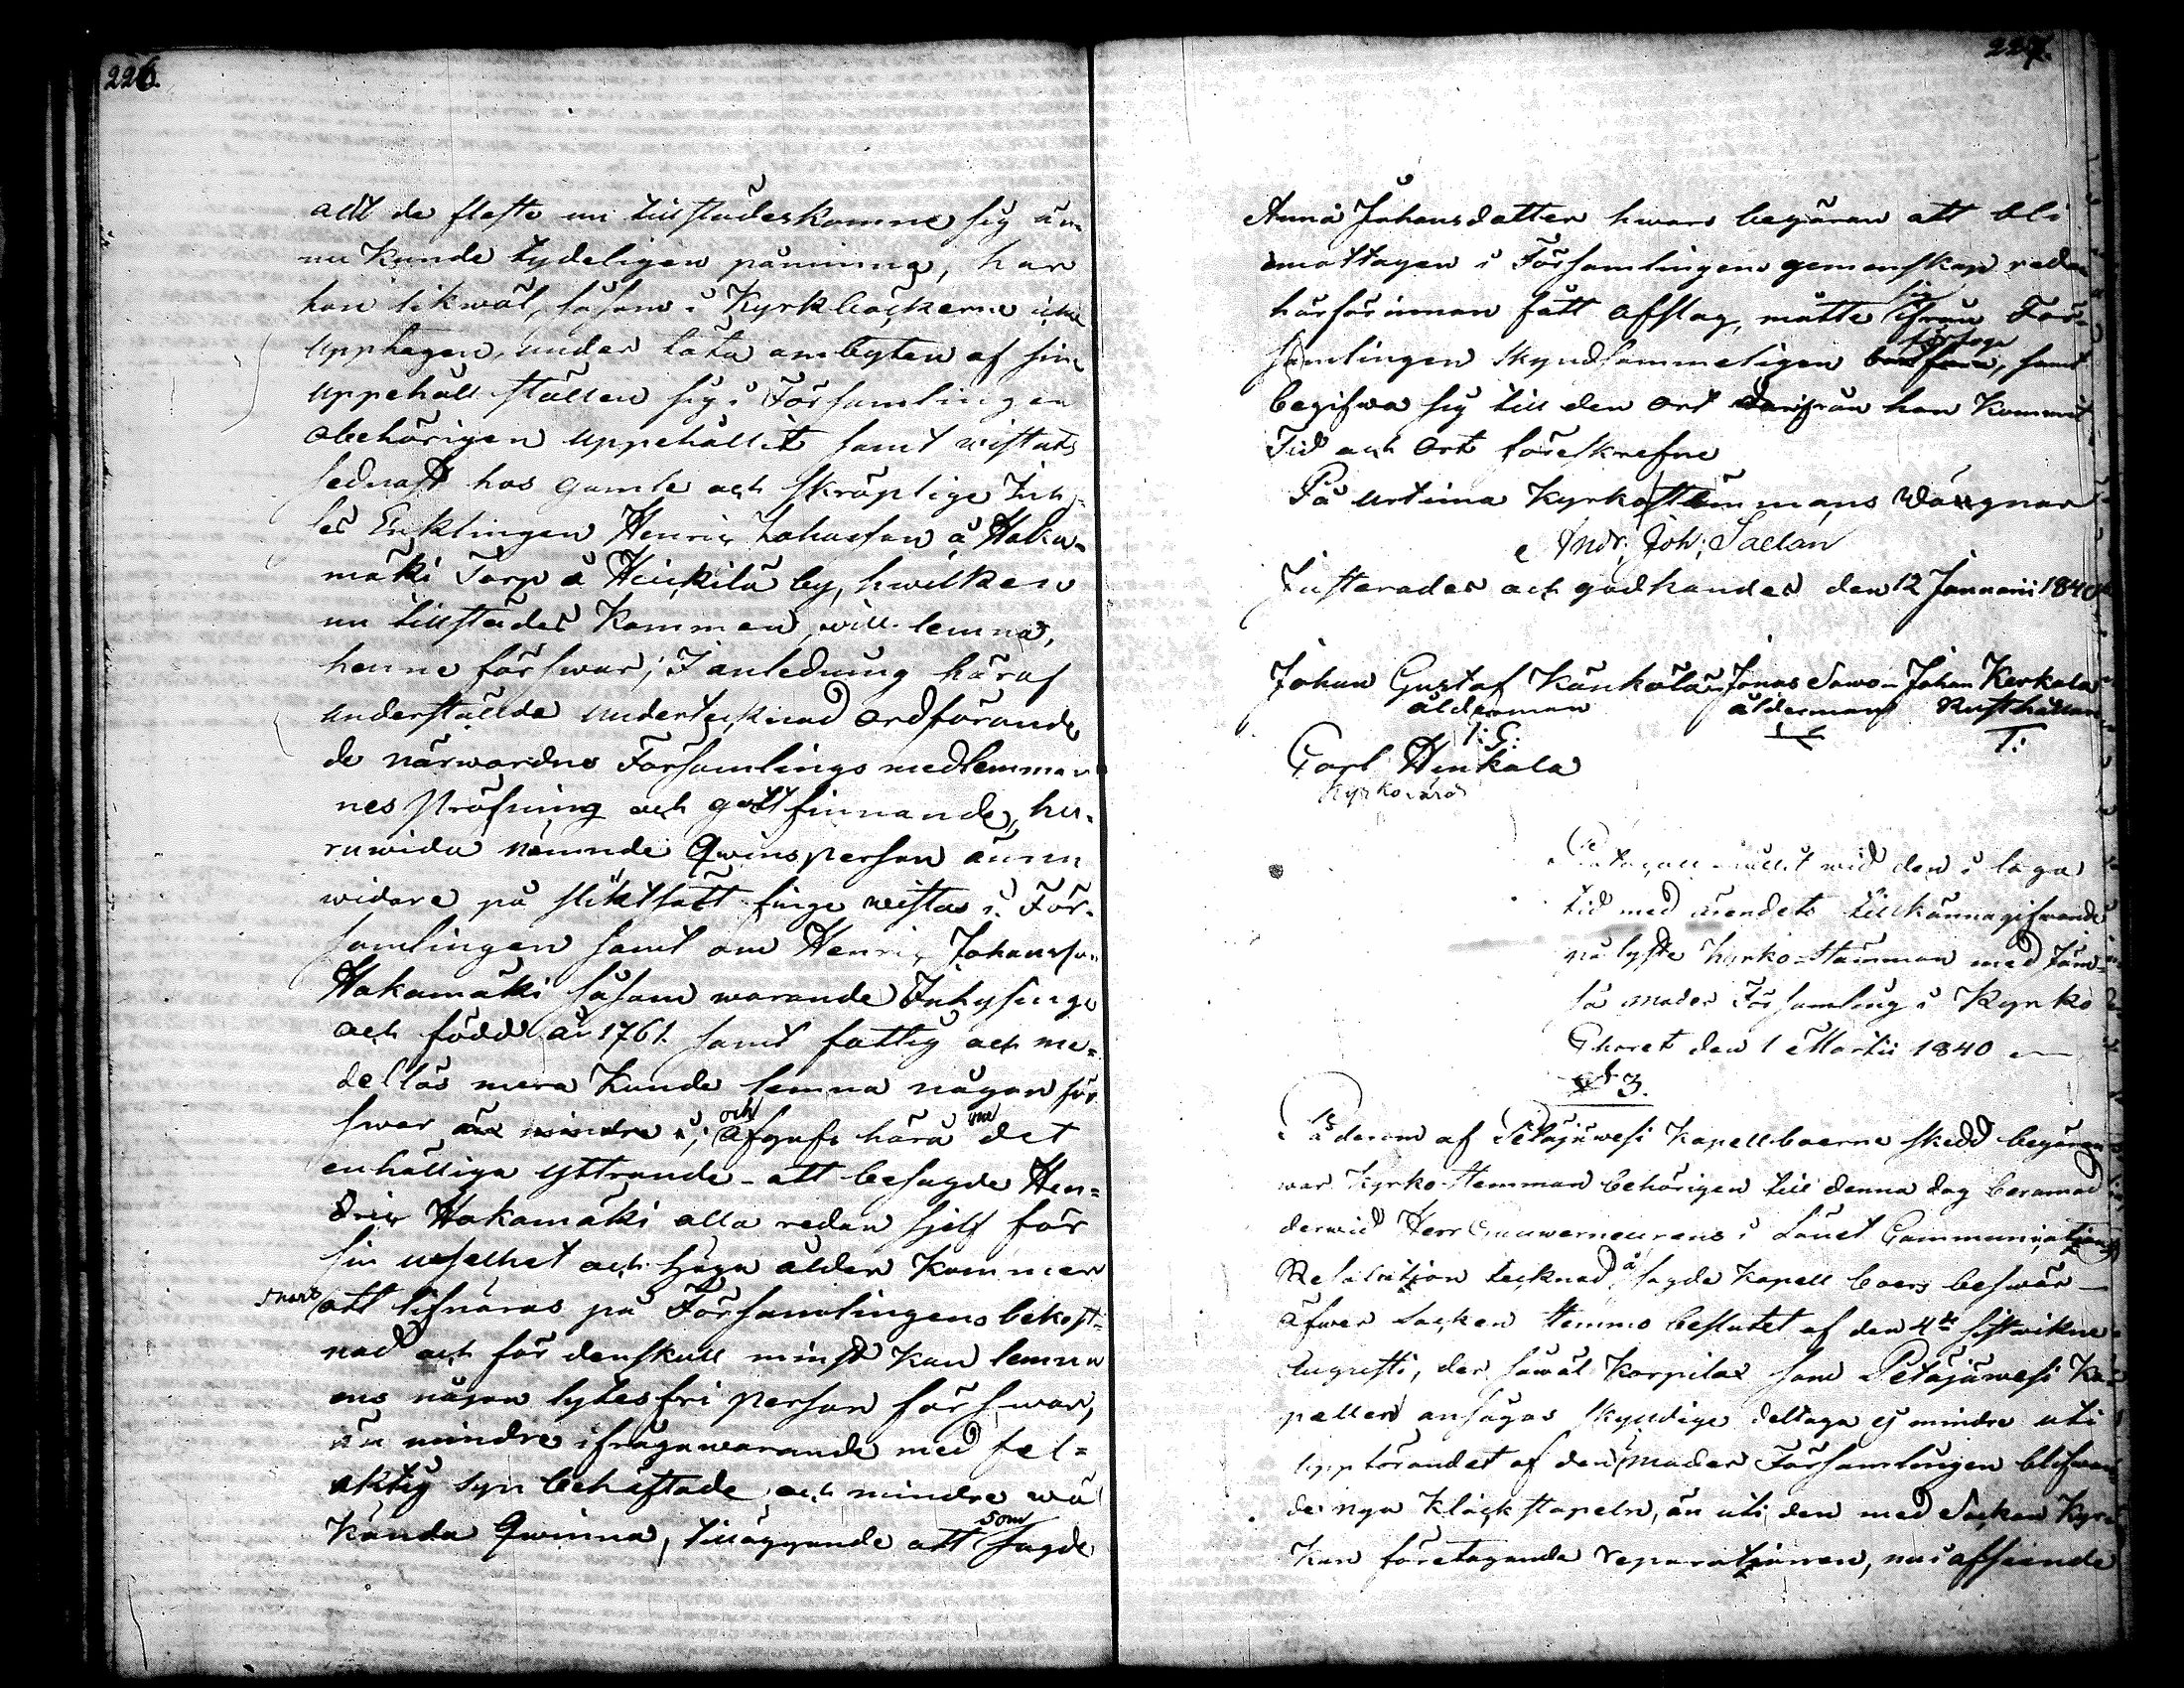 226.
allt de fleste nu tillstädeskomne sig än-
nu kunde tydeligen påminna, har
hon likwäl, såsom i Kyrkböckerne icke
upptagen, under täta ombyten af sine
uppehålls ställen sig i Församlingen
obehörigen uppehållit samt wistats
sednast hos gamle och skröplige Inh.
Enklingen Henric Johansson å Haka-
mäki Torp å Heinkilä by, hwilken
nu tillstädes kommen, will lemna,
henne förswar; I anledning häraf
underställde undertecknad ordförande
de närwarande Församlings medlemmar
nes pröfning och godtfinnande, hu-
ruwida nämnde Qwinsperson ännu
widare på slikt sätt finge wistas i För-
samlingen samt om Henric Johansson
Hakamäki såsom warande Inhysinge
och född år 1761. samt fattig och me-
dellös mera kunde lemna någon för
swar än mindre; och afgafs häröfver det
enhälliga yttrande - att besagde Hen-
dric Hakamäki alla redan sjelf för
sin uselhet och höga ålder kommer
snart att lifnäras på Församlingens bekost-
nad och för denskull minst kan lemna
ens någon lytesfri person förswar,
än mindre ifrågawarande med fel-
aktig syn behäftade och mindre wäl
kända Qwinna, tilläggande att som sagde
227.
Anna Johansdotter hwars begäran att bli
emottagen i Församlingens gemenskap redan
härförinnan fått afslag, måtte sig ifrån För-
samlingen skyndsammeligen förfoga, samt
begifwa sig till den ort hon kommit
Tid och ort föreskrefne
På Urtima Kyrkostämmans wägnar
Andr. Joh. Saelan
Justerades och godkändes den 12 Januarii 1840
Johan Gustaf Känkölä Jonas Sawo Johan Kerkola
ålderman ålderman Rusthållare
Carl Heinkala
Kyrkovärd
Protocoll hållit wid den i laga
tid med ärendets tillkännagifwande
pålyste Kyrko-Stämman med Jäm-
sä Moder Församling i Kyrko
Choret den 1 Martii 1840
§ 3.
På derom af Petäjäwesi Kapellboerne skedd begäran
war Kyrko-Stemman behörigen till denna dag beramad
derwid Herr Gouwerneurens i Länet Communications
Resolution tecknad å sagde Kapell boers beswär
öfwer Socken Stemmo beslutet af den 4de sistwikne
Augusti, der såwäl Korpilax som Petäjäwesi Ka-
peller ansågos skyldige deltaga ej mindre uti
uppförandet af den i Moder Församlingen blifwan
de nya klockstapeln, än uti den med Socken Kyr-
kan företagande reparationen, nu i afseende